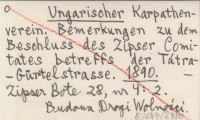 Ungarischer Karpathen-
verein. Bemerkungen zu dem
Beschluss des Zipser Comi-
tates betreffs der Tátra-
-Gürtelstrasse. 1890.
Zipser Bote 28, nr 4: 2.
Budowa Drogi Wolności.